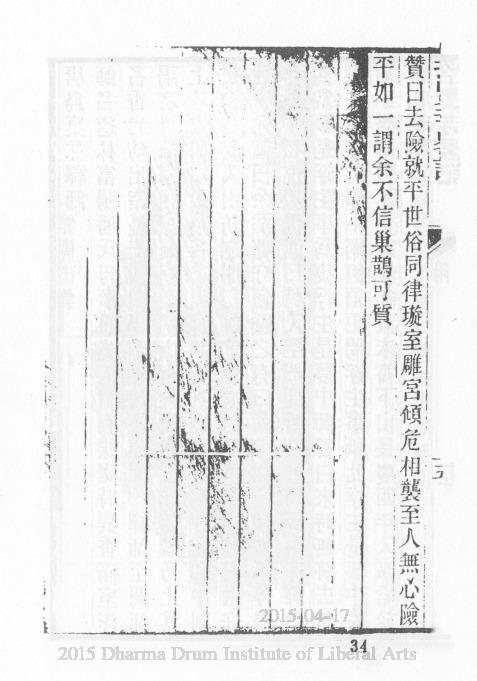 贊曰去險就平世俗同律璇室雕宮傾危相襲至人無心險
平如一謂余不信巢鵲可質
2015-04-17
34
2015 Dharma Drum Institute of Liberal Arts